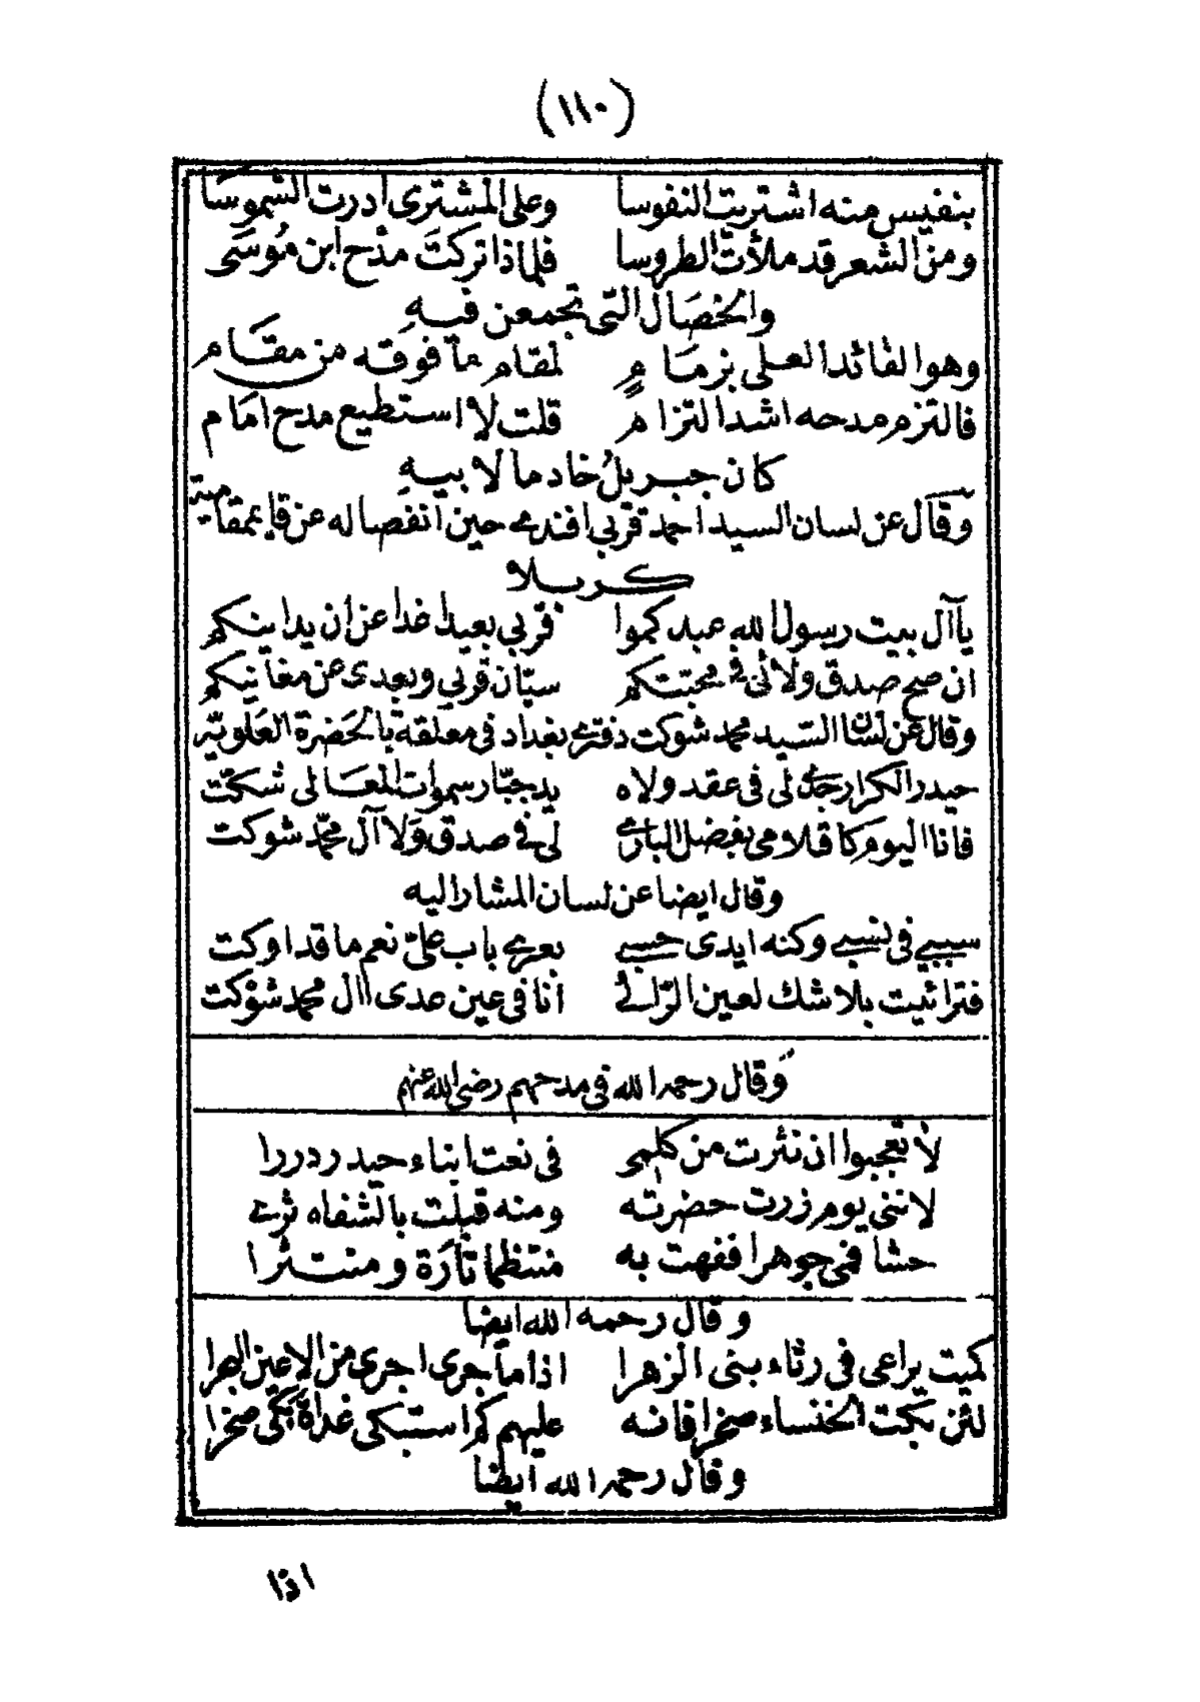 (١١٠)
بنفيس منه اشتريت النفوسا وعلى المشترى ادرت الشموسا
ومن الشعر قد ملأت الطروسا فلماذا تركت مدح ابن موسى
والخصال التي تجمعن فيه
وهو القائد العلى بزمام لمقام ما فوقه من مقام
فالتزم مدحه اشد التزام قلت لا استطيع مدح امام
كان جبريل خادما لابيه
وقال عن لسان السيد احمد قربي افندي حين انفصاله عن قايمقامية
كربلا
يا آل بيت رسول الله عبدكموا قربي بعيدا غدا عن ان يدانيكم
ان صح صدق ولائي في محبتكم سيّان قربي وبعدى عن مغانيكم
وقال عن لسان السّيد محمد شوكت دفتري بغداد في معلقة بالحضرة العلويّه
حيدر الكرار جدى لى فى عقد ولاه يد جبّار سموات المعالى شكّت
فانا اليوم كاقلامى بفضل البارى لى في صدق ولا آل محمّد شوكت
وقال ايضا عن لسان المشار اليه
سببى فى نسبى وكنه ايدى حسبى بعرى باب علىّ نعم ما قد اوكت
فترائيت بلا شك لعين الرّائى أنا فى عين عدى اال محمد شوكت
وقال رحمه الله فى مدحهم رضى الله عنهم
لا تعجبوا ان نثرت من كلمى فى نعت ابناء حيدر دررا
لاننى يوم زرت حضرته ومنه قبلت بالشفاه ثرى
حشا فمى جوهرا ففهت به منتظما تارة ومنتثرا
وقال رحمه الله ايضا
كميت يراعى فى رثاء بنى الزهرا اذا ما جرى اجرى من الاعين البحرا
لئن بكت الخنساء صخرا فانه عليهم كم استبكى غداة بكى صخرا
وقال رحمه الله ايضا
اذا